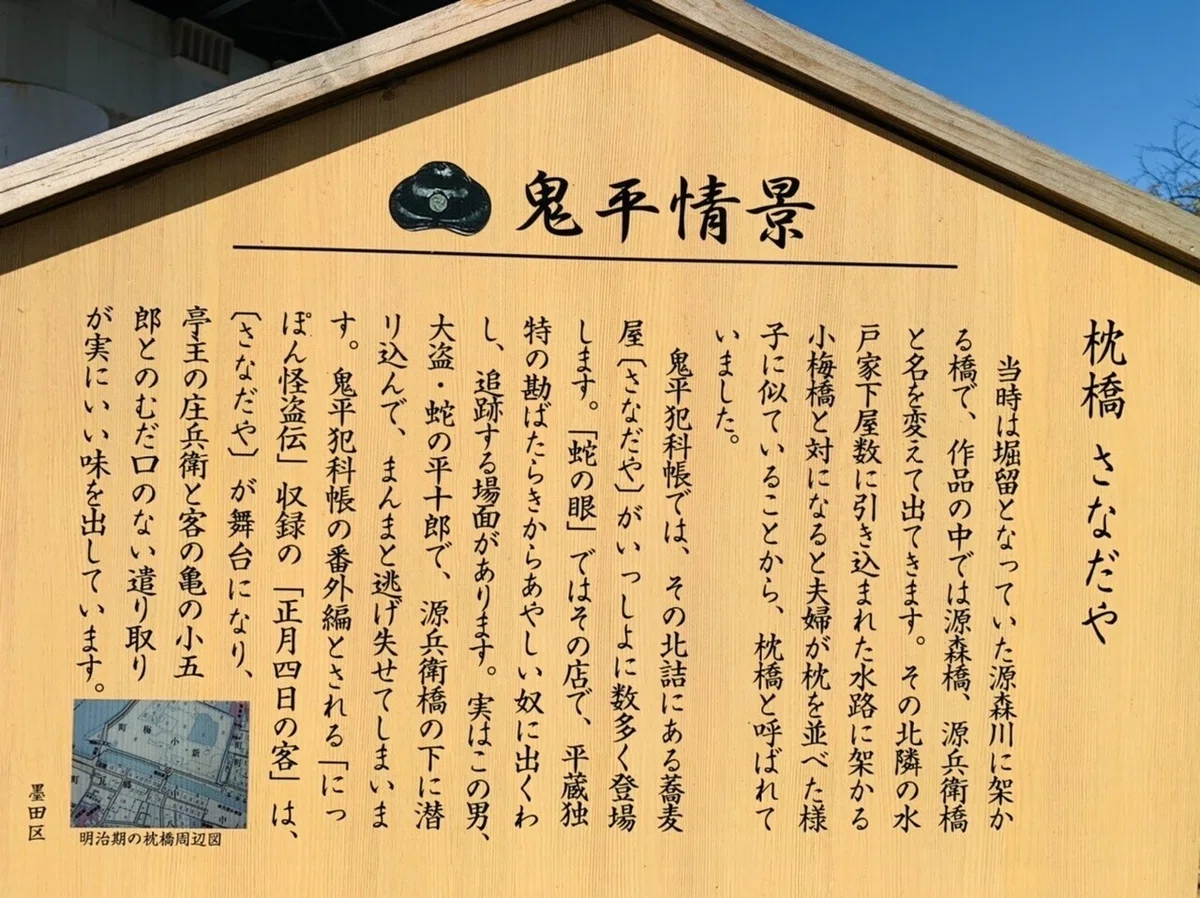 鬼平情景
枕橋 さなだや
当時は堀留となっていた源森川に架か
る橋で、作品の中では源森橋、源兵衛橋
と名を変えて出てきます。その北隣の水
戸家下屋数に引き込まれた水路に架かる
小梅橋と対になると夫婦が枕を並べた様
子に似ていることから、枕橋と呼ばれて
いました。
鬼平犯科帳では、その北詰にある蕎麦
屋〔さなだや〕がいっしよに数多く登場
します。「蛇の眼」ではその店で、平蔵独
特の勘ばたらきからあやしい奴に出くわ
し、追跡する場面があります。実はこの男、
大盗・蛇の平十郎で、源兵衛橋の下に潜
り込んで、まんまと逃げ失せてしまいま
す。鬼平犯科帳の番外編とされる「にっ
ぽん怪盗伝」収録の「正月四日の客」は、
〔さなだや〕が舞台になり、
亭主の庄兵衛と客の亀の小五
郎とのむだ口のない遣り取り
が実にいい味を出しています。
新小梅町
明治期の枕橋周辺図
墨田区